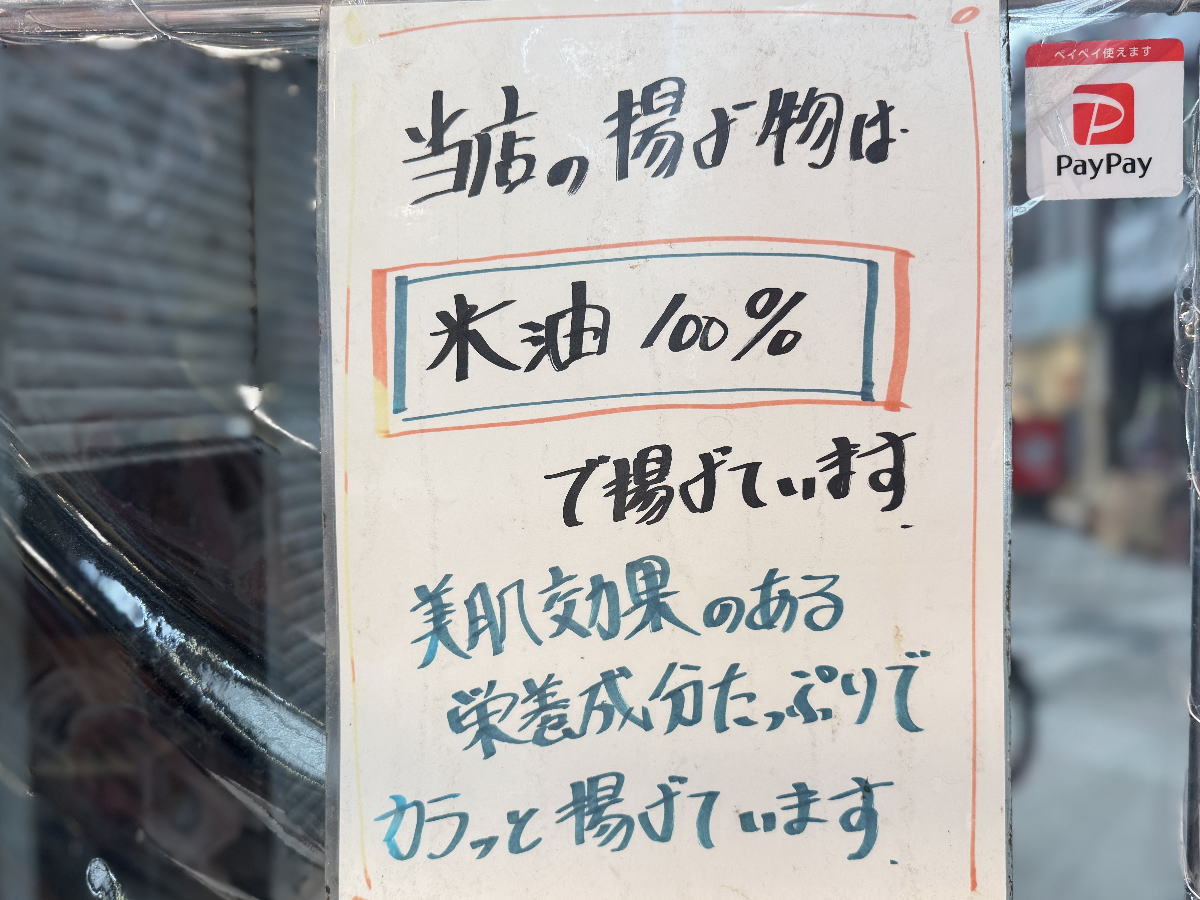 当店の揚げ物は
米油100%
で揚げています.
美肌効果のある
栄養成分たっぷりで
カラっと揚げています.
ペイペイ使えます
PayPay